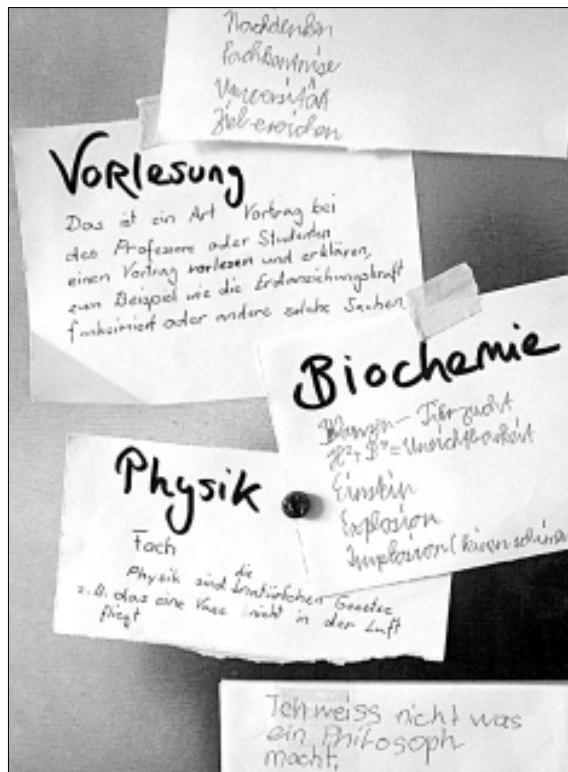 Nachdenken
Fachkentnise
Universität
Ziel erreichen
Vorlesung
Das ist ein Art Vortrag bei
des Professore oder Studenten
einen Vortrag vorlesen und erklären,
zum Beispiel wie die Erdanziehungskraft
funkzioniert oder andere solche Sachen
Biochemie
Tierzucht
= Unsichtbarkeit
Einstein
Explosion
Implosion
Physik
Fach
Physik sind die natürlichen Gesetze
z.B. das eine Vase nicht in der Luft
fliegt
Ich weiss nicht was
ein Philosoph
macht.